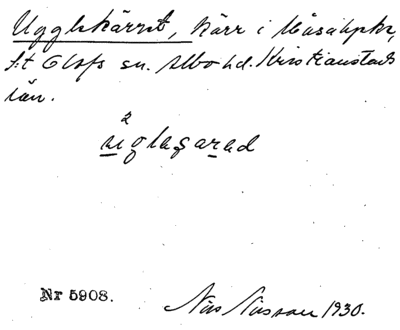 Ugglekärret, Kärr i Måsahpkr,
S:t Olofs sn. Albo hd. Kristianstads
län.
2
uglaçarad
Nr 5908.
Nils Nilsson 1930.